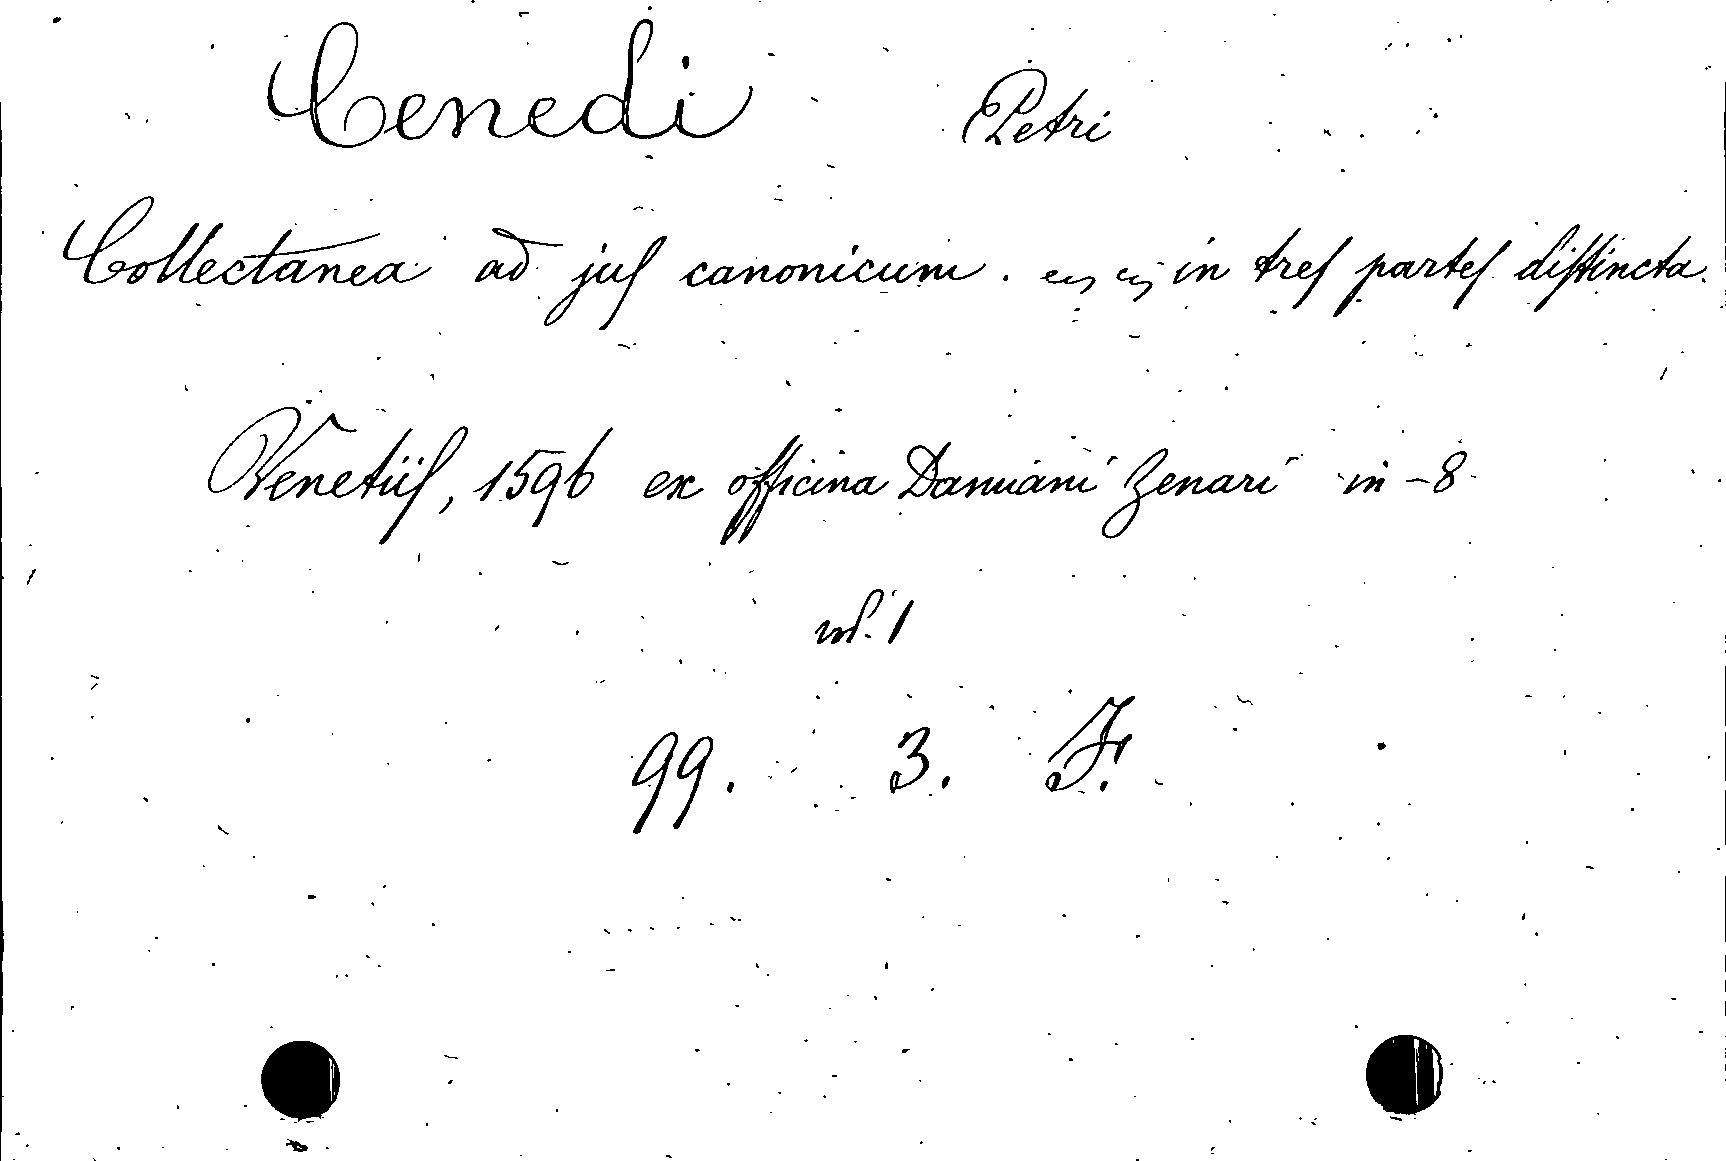 Cenedi Petri
Collectanea ad jus canonicum. in tres partes distincta.
Venetiis, 1596 ex officina Damiani Zenari in-8
vol. 1
99. 3. F.